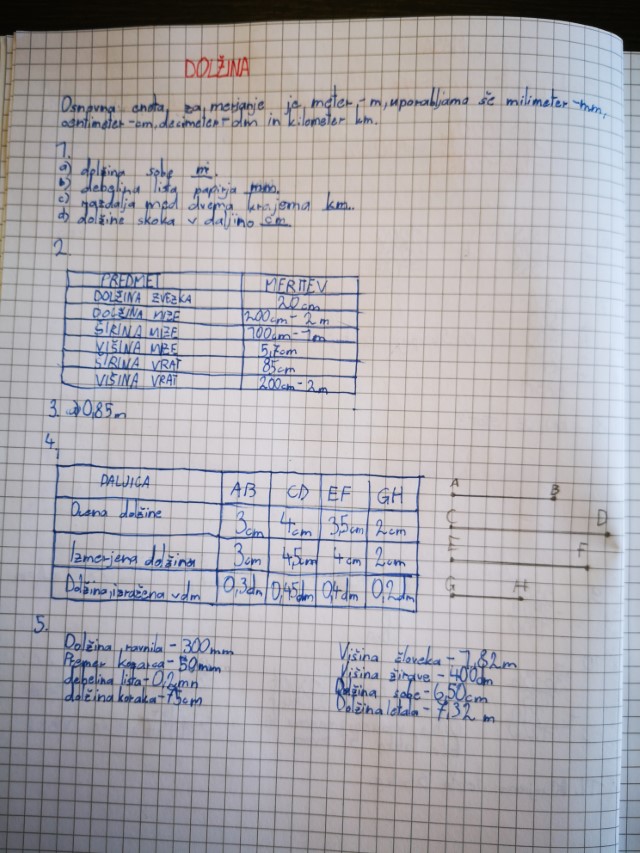 DOLŽINA
Osnovna enota, za merjanje je meter-m, uporabljamo še milimeter-mm,
centimeter-cm, decimeter-dm in kilometer km.
1.
a) dolžina sobe m.
b) debelina lista papirja mm.
c) razdalja med dvema krajema km.
d) dolžine skoka v daljino cm
2.
PREDMET MERITEV
DOLŽINA ZVEZKA 20cm
DOLŽINA MIZE 200cm-2m
ŠIRINA MIZE 100cm-1m
VIŠINA MIZE 5,7cm
ŠIRINA VRAT 85cm
VIŠINA VRAT 200cm-2m
3. a) 0,85m
4.
DALJICA AB CD EF GH
Ocena dolžine 3cm 4cm 3,5cm 2cm
Izmerjena dolžina 3cm 4,5cm 4cm 2cm
Dolžina, izražena v dm 0,3dm 0,45dm 0,4dm 0,2dm
A B
C D
E F
G H
5.
Dolžina ravnila-300mm
Premer kozarca-50mm
debelina lista-0,2mm
dolžina koraka-75cm
Višina človeka-1,82m
Višina žirafe-400dm
Dolžina sobe-6,50cm
Dolžina letala-7,32 m